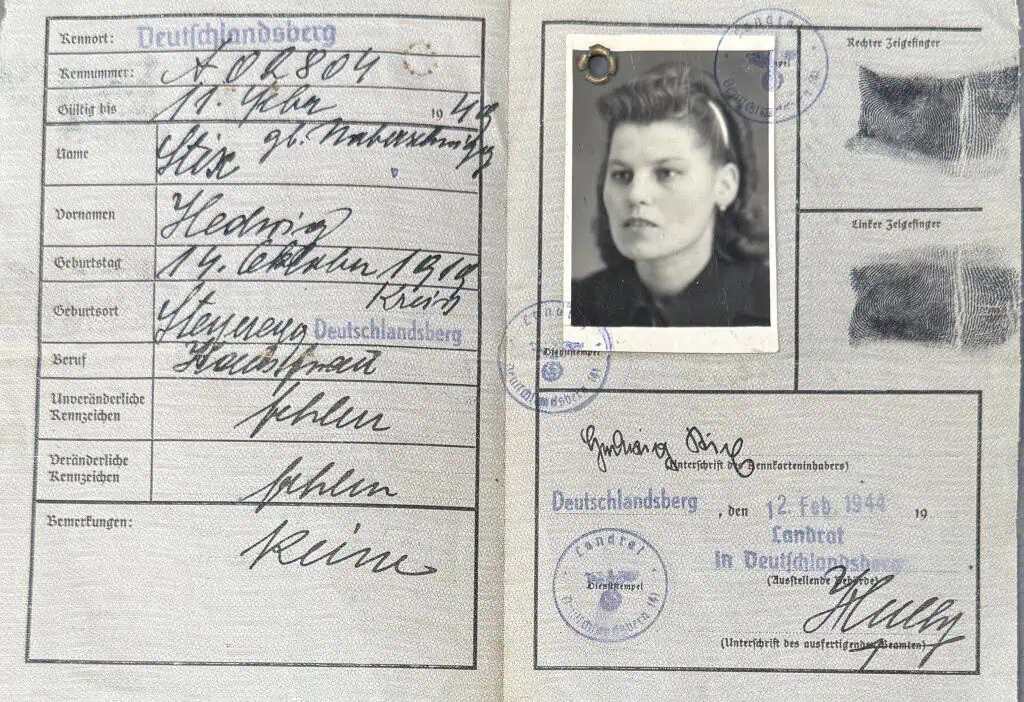 Kennort: Deutschlandsberg
Kennummer: A 02804
Gültig bis 11. Febr. 19 49
Name Stix gb.
Vornamen Hedwig
Geburtstag 14. Oktober 1919
Geburtsort Steyeregg Kreis Deutschlandsberg
Beruf Hausfrau
Unveränderliche
Kennzeichen fehlen
Veränderliche
Kennzeichen fehlen
Bemerkungen: keine
Rechter Zeigefinger
Linker Zeigefinger
Landrat
Deutschlandsberg
Dienststempel
Hedwig Stix
(Unterschrift des Kennkarteninhabers)
Deutschlandsberg, den 12. Feb. 1944 19
Landrat
in Deutschlandsberg
(Ausstellende Behörde)
Landrat
Dienststempel
Deutschlandsberg
(Unterschrift des ausfertigenden Beamten)